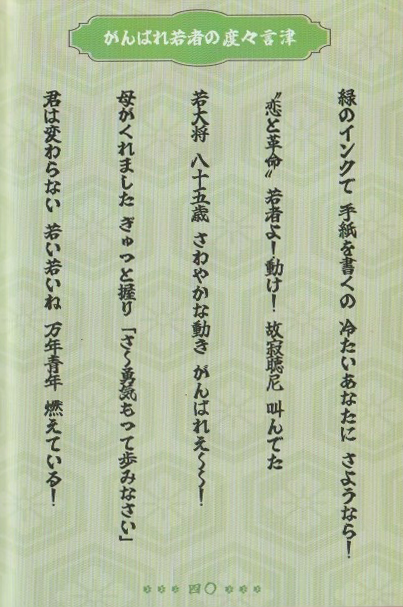 がんばれ若者の度々言津
緑のインクで 手紙を書くの 冷たいあなたに さようなら！
〝恋と革命〟 若者よ！動け！ 故寂聴尼 叫んでた
若大将 八十五歳 さわやかな動き がんばれえ〜〜！
母がくれました ぎゅっと握り 「さ〜勇気もって歩みなさい」
君は変わらない 若い若いね 万年青年 燃えている！
四〇